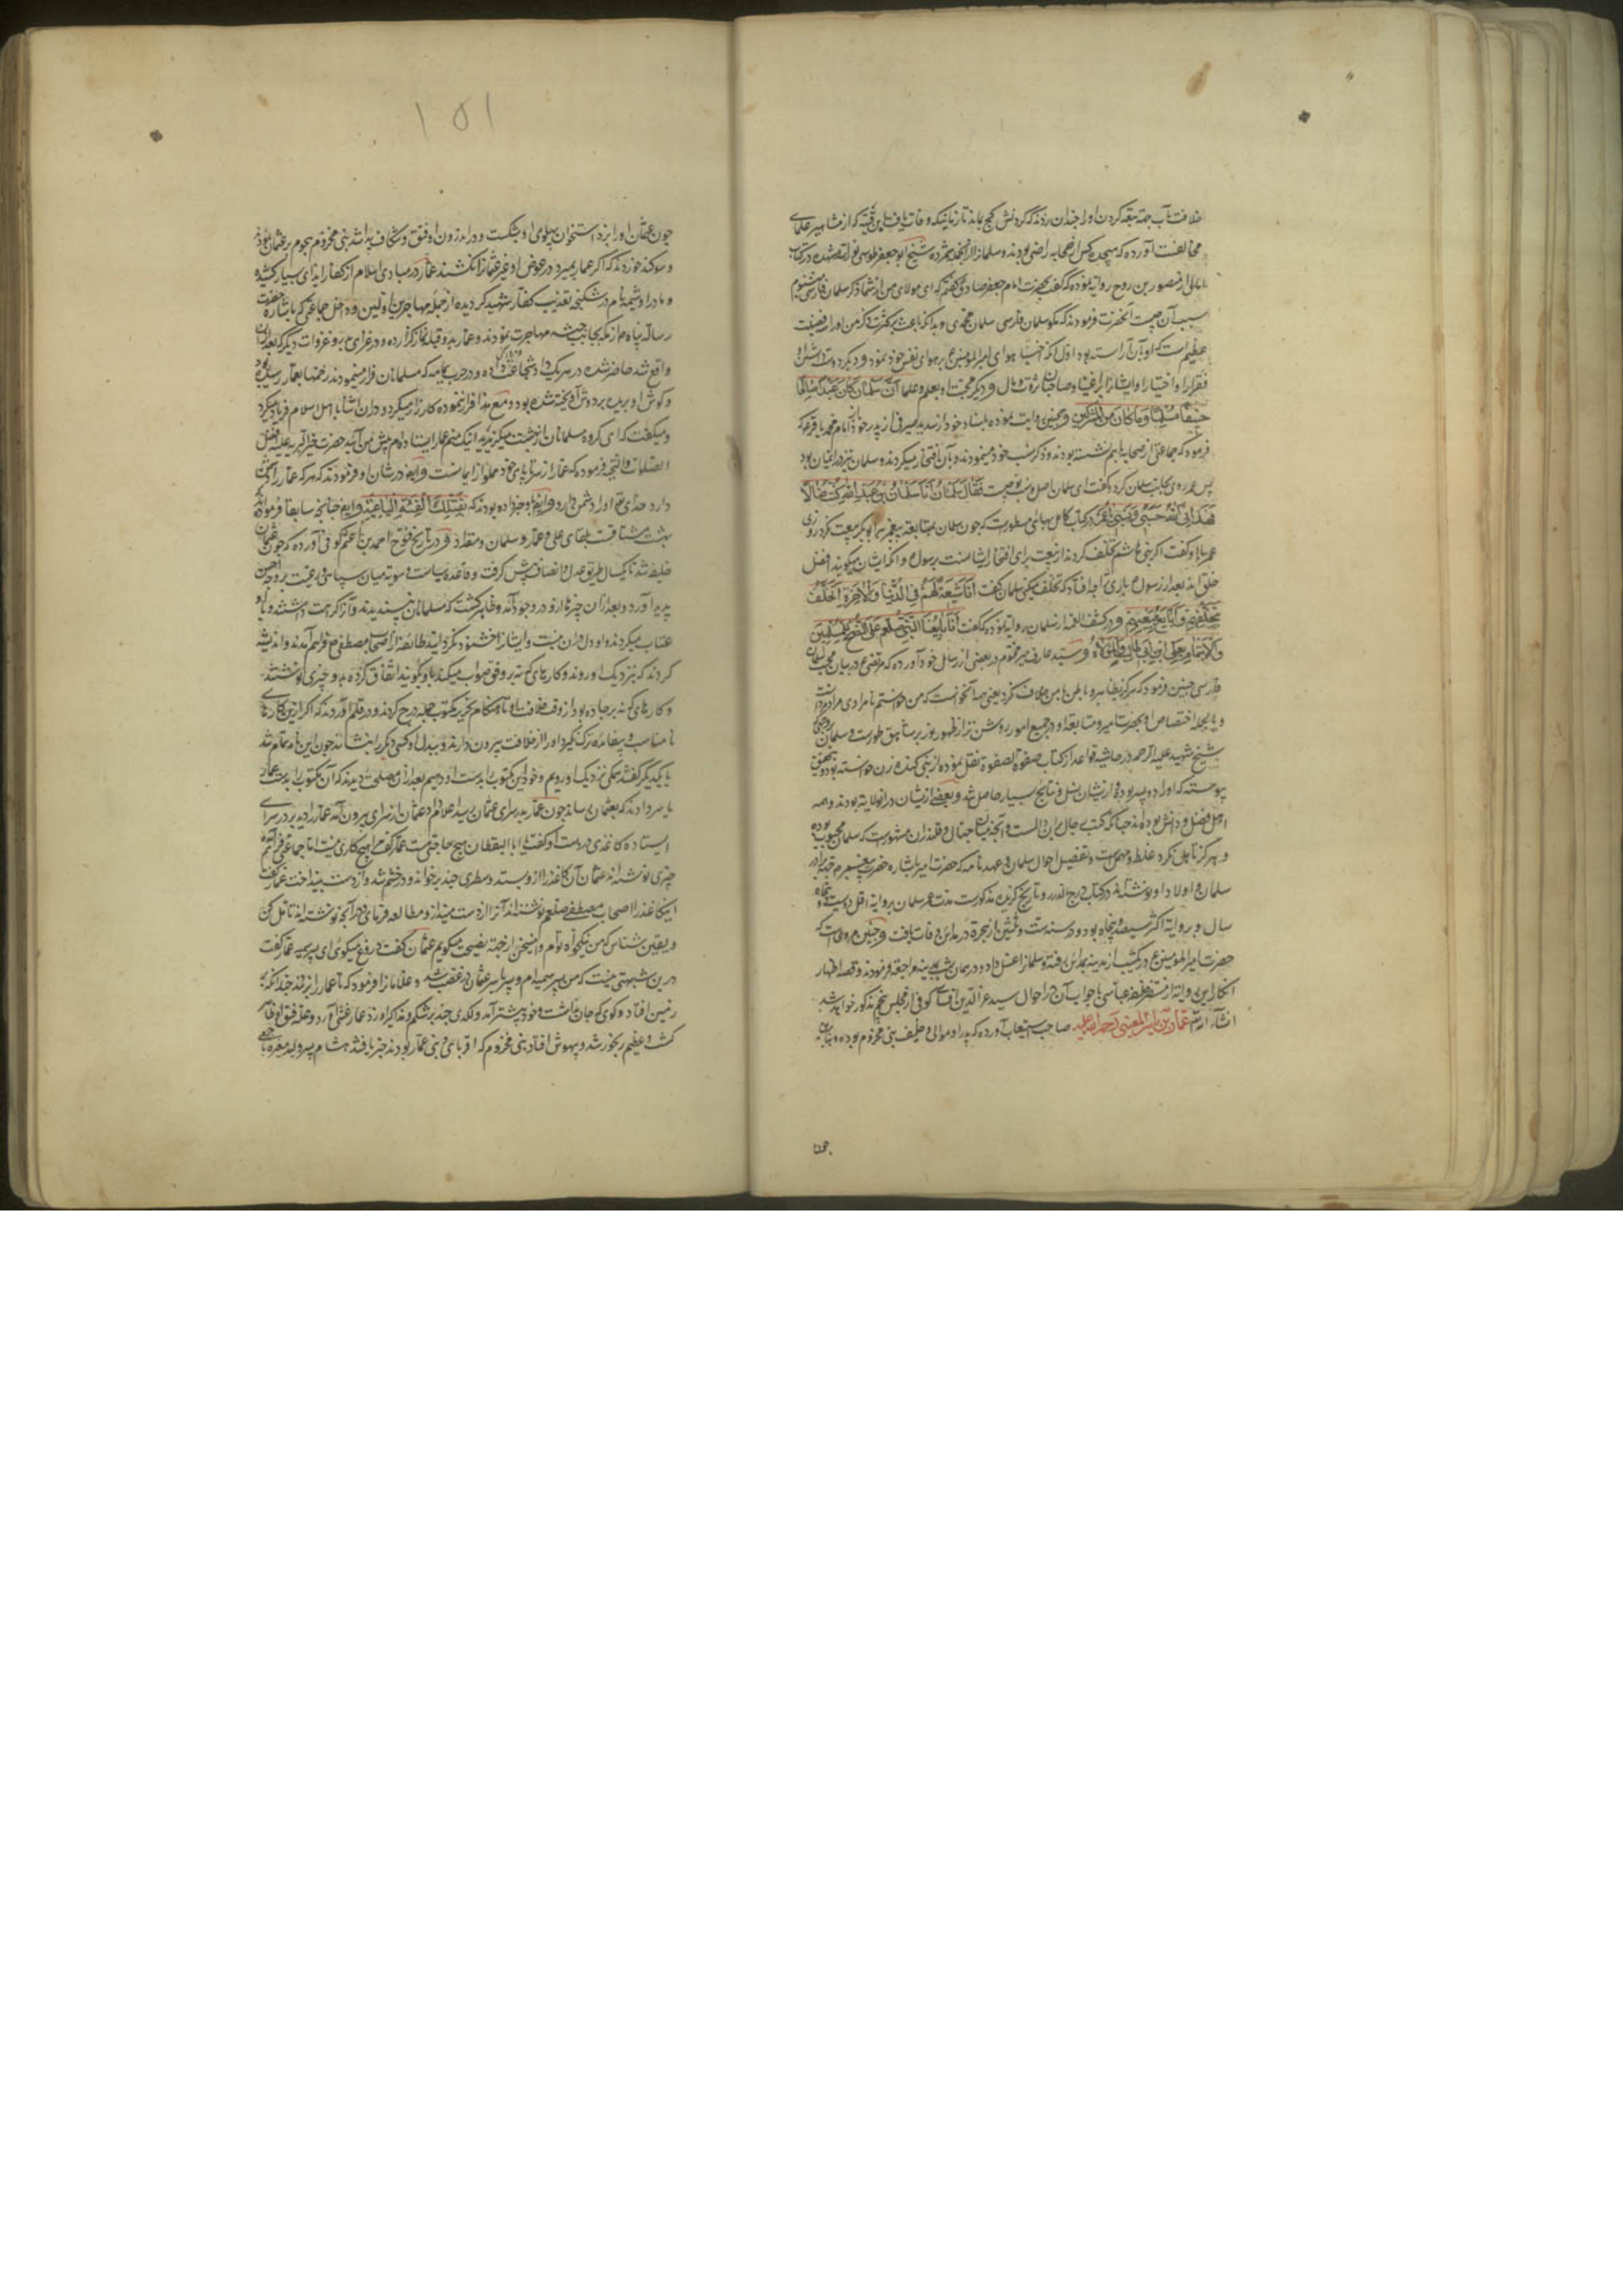 خلافت مآب جمع کردن او را چندان زدند که گردنش کج بماند تا زمانیکه وفات یافت ابن قتیبه که از مشاهیر علمای
مخالفست آورده که هیجده کس از صحابه رافضی بودند و سلمان را از آنجمله شمرده شیخ ابو جعفر طوسی نور الله مشهده در کتاب
امالی از منصور بن روح روایة نموده که گفت بحضرت امام جعفر صادق گفتم که ای مولای من از شما ذکر سلمان فارسی بسیار میشنوم
سبب آن چیست آنحضرت فرمودند که مگو سلمان فارسی سلمان محمدی و بدانکه باعث بر کثرت ذکر من او را سه فضیلت
عظیم است که او بآن آراسته بود اول آنکه اختیار هوای امیر المؤمنین بر هوای نفس خود نمود و دیگر دوست داشتن او
فقرا را و اختیار او ایشان را بر اغنیا و صاحبان ثروة و مال و دیگر محبت او بعلم و علما ان سلمان کان عبدا صالحا
حنیفا مسلما و ما کان من المشرکین و همچنین روایت نموده باسناد خود از سدیر صیرفی از پدر خود از امام محمد باقر که
فرمود که جماعتی از صحابه با هم نشسته بودند و ذکر نسب خود مینمودند و بآن افتخار میکردند و سلمان نیز در میان بود
پس عمر روی بجانب سلمان کرد و گفت ای سلمان اصل و نسب تو چیست فقال سلمان انا سلمان بن عبد الله کنت ضالا
فهدانی الله حسبی و نسبی یا عمر در کتاب کامل بهائی مسطورست که چون سلمان بمتابعة پیغمبر با ابوبکر بیعت نکرد روزی
عمر با او گفت اگر بنی هاشم تخلف کردند از بیعت برای افتخار ایشانست برسول و آنکه ایشان میگویند افضل
خلق اند بعد از رسول باری ترا چه افتاد که تخلف میکنی سلمان گفت انا شیعة لهم فی الدنیا و الاخرة اتخلف
بتخلفهم و ابایع ببیعتهم و در کشف الغمه از سلمان روایة نموده که گفت انا بایعنا النبی صلعم علی النصح للمسلمین
و الایتمام بعلی ابن ابی طالب و الموالاة له و سید عارف میر مختوم در بعضی از رسایل خود آورده که مرتضی در بیان محبت سلمان
فارسی چنین فرمود که هرگز بظاهر و باطن با من خلاف نکرد یعنی همه آنخواست که من خواستم نامرادی مراد دوست
و بالجمله اختصاص او بحضرت امیر و متابعة او در جمیع امور روشن تر از ظهور نور بر شاهق طورست و سلمان
شیخ شهید علیه الرحمه در حاشیه قواعد از کتاب صفوة الصفوة نقل نموده از بنی کنده زن خواسته بود و بتحقیق
پیوسته که او را دو پسر بود و از ایشان نسل و نتایج بسیار حاصل شد و بعضی از ایشان در آنولایة بودند و همه
اهل فضل و دانش بوده اند چنانکه کتب رجال بر آن دالست و آنچه میان جهال و قلندران مشهورست که سلمان مجبوب بوده
و هرگز تاهل نکرد غلط و مهملست و تفصیل احوال سلمان در عهدنامه که حضرت امیر باشاره حضرت پیغمبر جهة برادر
سلمان و اولاد او نوشته اند در کتاب درج الدرر و تاریخ گزیده مذکورست مدت عمر سلمان بروایة اقل دویست و پنجاه
سال و بروایة اکثر سیصد و پنجاه بود و در سنه ست و ثلثین از هجرة در مداین وفات یافت و چنین مرویست که
حضرت امیر المؤمنین در یکشب از مدینه بمداین رفته و سلمان را غسل داد و در همان شب بمدینه مراجعه فرمودند و قصه اظهار
انکار این روایة از مستنصر خلیفه عباسی با جواب آن در احوال سید عز الدین اقساسی کوفی از مجلس پنجم مذکور خواهد شد
انشاء الله عمار بن یاسر العنسی رحمة الله علیه صاحب استیعاب آورده که پدر او موالی و حلیف بنی مخزوم بوده و بنابر آن
چون
۱۵۱
چون عثمان او را بزد استخوان پهلوی او بشکست و در اندرون او فتق و شکاف پیدا شد بنی مخزوم هجوم بر عثمان نمودند
و سوگند خوردند که اگر عمار بمیرد در عوض او غیر عثمان را نکشند عمار در مبادی اسلام از کفار ایذای بسیار کشیده
و مادر او سمیه نام در شکنجه تعذیب کفار شهید گردیده از جمله مهاجرین اولین و داخل جماعتی که باشارة حضرت
رسالة پناه از مکه بجانب حبشه مهاجرت نمودند و عمار بدو قبله نماز گزارده و در غزای بدر و غزوات دیگر که بعد از آن
واقع شد حاضر شده در هر یک داد شجاعت داده و در حرب یمامه که مسلمانان فرار مینمودند زخمها بعمار رسیده بود
و گوش او بریده بر دوش آویخته شده بود و مع هذا فرار ننموده کارزار میکرد و در آن اثنا با اهل اسلام فریاد میکرد
و میگفت که ای گروه مسلمانان از بهشت میگریزید اینک منم عمار ایستاده ام پیش من آئید حضرت خیر البریه علیه افضل
الصلوات و التحیة فرموده که عمار از سر تا پای خود مملو از ایمانست و ایضا در شان او فرمودند که هر که عمار را دشمن
دارد خدای تعالی او را دشمن دارد و ایضا باو خبر داده بودند که یقتلک الفئة الباغیة و ایضا چنانچه سابقا فرمودند که
بهشت مشتاقست بلقای علی و عمار و سلمان و مقداد و در تاریخ فتوح احمد بن اعثم کوفی آورده که چون عثمان
خلیفه شد تا یکسال طریق عدل و انصاف پیش گرفت و قاعده سیاست و سویة میان سپاهی و رعیت بر وجه احسن
پدید آورد و بعد از آن چیزها ازو در وجود آمد و ظاهر گشت که مسلمانان نپسندیدند و آنرا کراهت داشتند و با او
عتاب میکردند و او دل در آن نبست و ایشان را خشنود نگردانید طائفه از اصحاب مصطفی فراهم آمدند و اندیشه
کردند که بنزدیک او روند و کارهای که نه بر وفق صواب میکند باو بگویند اتفاق کرده بهر چیزی نوشتند
و کارهای که نه بر جاده بود از وقت خلافت او تا هنگام تحریر مکتوب جمله درج کردند و در قلم آوردند که اگر ازین کارهای
نامناسب و بیفایده ترک نگیرد او را از خلافت بیرون دارند و ببدل او کسی دیگر را بنشانند چون این نامه تمام شد
با یکدیگر گفتند همگی نزدیک او رویم و خود این مکتوب را بدست او دهیم بعد از آن مصلحت دیدند که آن مکتوب را بدست عمار
یاسر دادند که بعثمان رساند چون عمار بدر سرای عثمان رسید اعلام داد عثمان از سرای بیرون آمد عمار را دید بر در سرای
ایستاده کاغذی در دست او گفت یا ابا الیقظان هیچ حاجتی هست عمار گفت مرا هیچ کاری نیست اما جماعتی فراهم آمده
چیزی نوشته اند عثمان آن کاغذ را ازو بستد و سطری چند بر خواند و در خشم شد و از دست بینداخت عمار گفت
اینکاغذ را اصحاب مصطفی صلعم نوشته اند آنرا از دست مینداز و مطالعه فرمای و در آنچه نوشته اند تامل کن
و یقین شناس که من نیکخواه توام و اینسخن از جهة نصیحت میگویم عثمان گفت دروغ میگوئی ای پسر سمیه عمار گفت
درین شبهتی نیست که من پسر سمیه ام و پسر یاسر عثمان در غضب شد و غلامان را فرمود که تا عمار را بزدند چندانکه بر
زمین افتاد و گوئی که جان نداشت و خود پیشتر آمد و لگدی چند بر شکم و مذاکیر او زد عمار غشی آورد و علة فتق او ظاهر
گشت و عظیم رنجور شد و بیهوش افتاد بنی مخزوم که اقربای وبنی عمار بودند خبر یافتند هشام بن ولید بن مغیره با جمعی